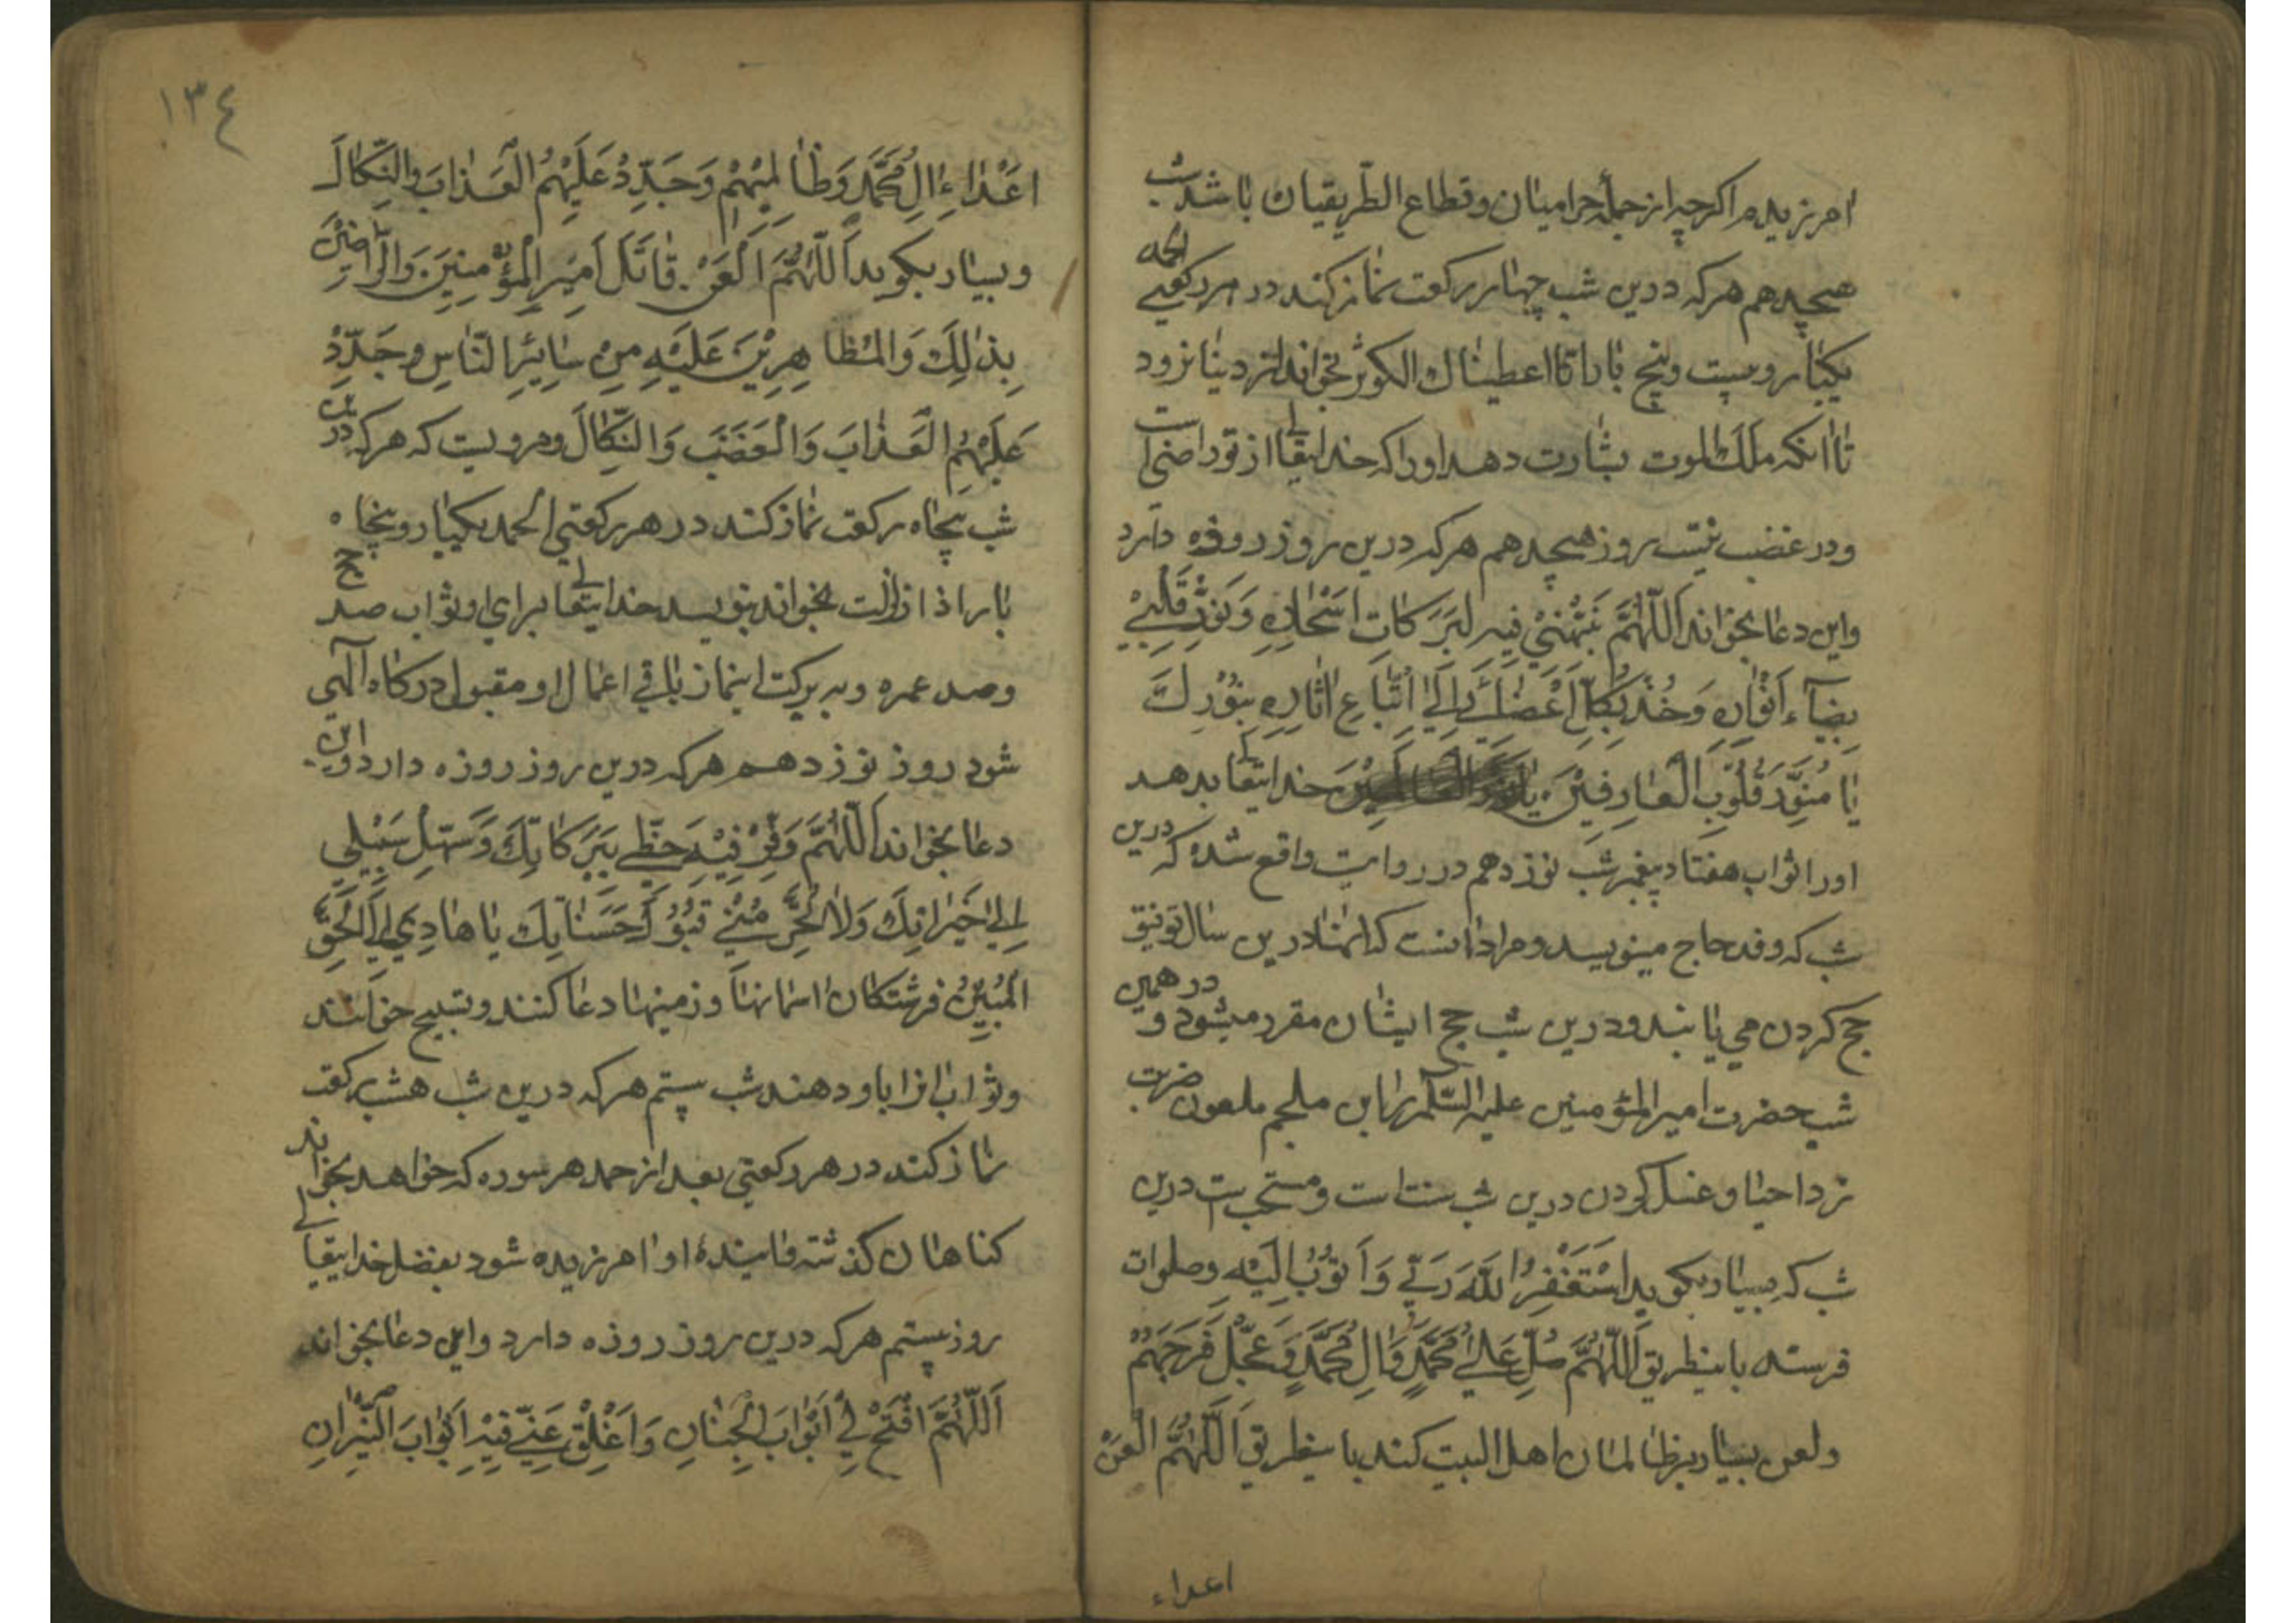 امرزیدم اکرچه از جملهٔ حرامیان و قطاع الطّریقیان باشد شب
هیجدهم هرکه درین شب چهار رکعت نماز کند در هر رکعتی الحمد
یکبار و بیست و پنج بار انّا اعطیناک الکوثر بخواند از دنیا نرود
تا انکه ملک الموت بشارت دهد او را که خدایتعالی از تو راضی است
و در غضب نیست روز هیجدهم هرکه درین روز روزه دارد
و این دعا بخواند اَللّهُمَّ نَبِّهْنِیْ فِیهِ لِبَرَکاتِ اَسْحارِهِ وَنَوِّرْ قَلْبِیْ
بِضِیآءِ اَنْوٰارِهِ وَخُذْ بِکُلِّ اَعْضٰائِی اِلیَ اتِّبَاعِ اٰثارِهِ بِنُوْرِکَ
یٰا مُنَوِّرَ قُلُوْبِ الْعٰارِفِیْنَ خدایتعالی بدهد
او را ثواب هفتاد پیغمبر شب نوزدهم در روایت واقع شده که درین
شب که وفد حاج مینویسد و مراد انست که انها درین سال توفیق
حج کردن می یابند و درین شب حج ایشان مقرر میشود و در همین
شب حضرت امیر المؤمنین علیه السّلام را ابن ملجم ملعون ضربت
زد احیا و غسل کردن درین شب سنت است و مستحب است درین
شب که بسیار بکوید اَسْتَغْفِرُ اللّهَ رَبّی وَاَتُوْبُ اِلَیْهِ و صلوات
فرستد باینطریق اَللّهُمَّ صَلِّ عَلیٰ مُحَمَّدٍ وَاٰلِ مُحَمَّدٍ وَعَجِّلْ فَرَجَهُمْ
و لعن بسیار بر ظالمان اهل البیت کند باینطریق اَللّهُمَّ الْعَنْ
اعداء
١٣٤
اَعْدٰاءِ اٰلِ مُحَمَّدٍ وَظٰالِمِیْهِمْ وَجَدِّدْ عَلَیْهِمُ الْعَذٰابَ وَالنَّکٰالَ
و بسیار بکوید اَللّهُمَّ الْعَنْ قٰاتَلَ اَمِیْرِ الْمُؤْمِنِیْنَ وَالرّٰاضِیْنَ
بِذٰلِکَ وَالْمُظٰاهِرِیْنَ عَلَیْهِ مِنْ سٰایِرِ النّٰاسِ وَجَدِّدْ
عَلَیْهِمُ الْعَذٰابَ وَالْغَضَبَ وَالنَّکٰالَ و مرویست که هرکه درین
شب پنجاه رکعت نماز کند در هر رکعتی الحمد یکبار و پنجاه
بار اذا زلزلت بخواند بنویسد خدایتعالی برای او ثواب صد حج
و صد عمره و به برکت اینماز باقی اعمال او مقبول درکاه آلهی
شود روز نوزدهم هرکه درین روز روزه دارد و این
دعا بخواند اَللّهُمَّ وَفِّرْ فِیْهِ حَظِّی بِبَرَکٰاتِکَ وَسَهِّلْ سَبِیْلِی
اِلیٰ خَیْرٰاتِکَ وَلاٰ تَحْرِمْنِی قَبُوْلَ حَسَنٰاتِکَ یٰا هٰادِیْ اِلیَ الْحَقِّ
الْمُبِیْنِ فرشتکان اسمانها و زمینها دعا کنند و تسبیح خوانند
و ثواب انرا باو دهند شب بیستم هرکه درین شب هشت رکعت
نماز کند در هر رکعتی بعد از حمد هر سوره که خواهد بخواند
کناهان کذشته و اینده او امرزیده شود بفضل خدایتعالی
روز بیستم هرکه درین روز روزه دارد و این دعا بخواند
اَللّهُمَّ افْتَحْ لِی اَبْوٰابَ الْجِنٰانِ وَاَغْلِقْ عَنّی فِیْهِ اَبْوٰابَ النّیْرٰانِ